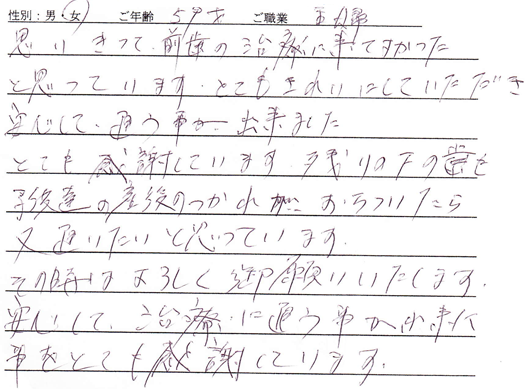 性別：男・女 ご年齢 59才 ご職業 主婦
思いきって、前歯の治療に来てよかった
と思っています。とてもきれいにしていただき
安心して、通う事が出来ました
とても感謝しています。残りの下の歯も
産後のつかれが、おちついたら
又通いたいと思っています。
その時はよろしく御願いいたします。
安心して、治療に通う事が出来た
事をとても感謝しています。